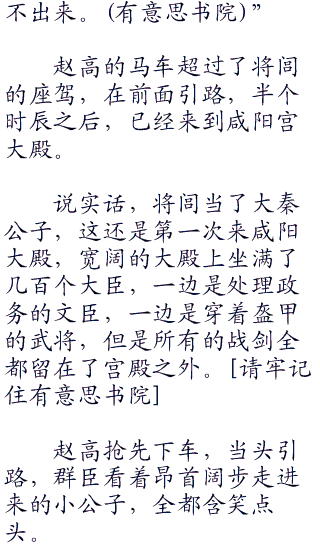 不出来。(有意思书院)”
赵高的马车超过了将闾
的座驾，在前面引路，半个
时辰之后，已经来到咸阳宫
大殿。
说实话，将闾当了大秦
公子，这还是第一次来咸阳
大殿，宽阔的大殿上坐满了
几百个大臣，一边是处理政
务的文臣，一边是穿着盔甲
的武将，但是所有的战剑全
都留在了宫殿之外。[请牢记
住有意思书院]
赵高抢先下车，当头引
路，群臣看着昂首阔步走进
来的小公子，全都含笑点
头。